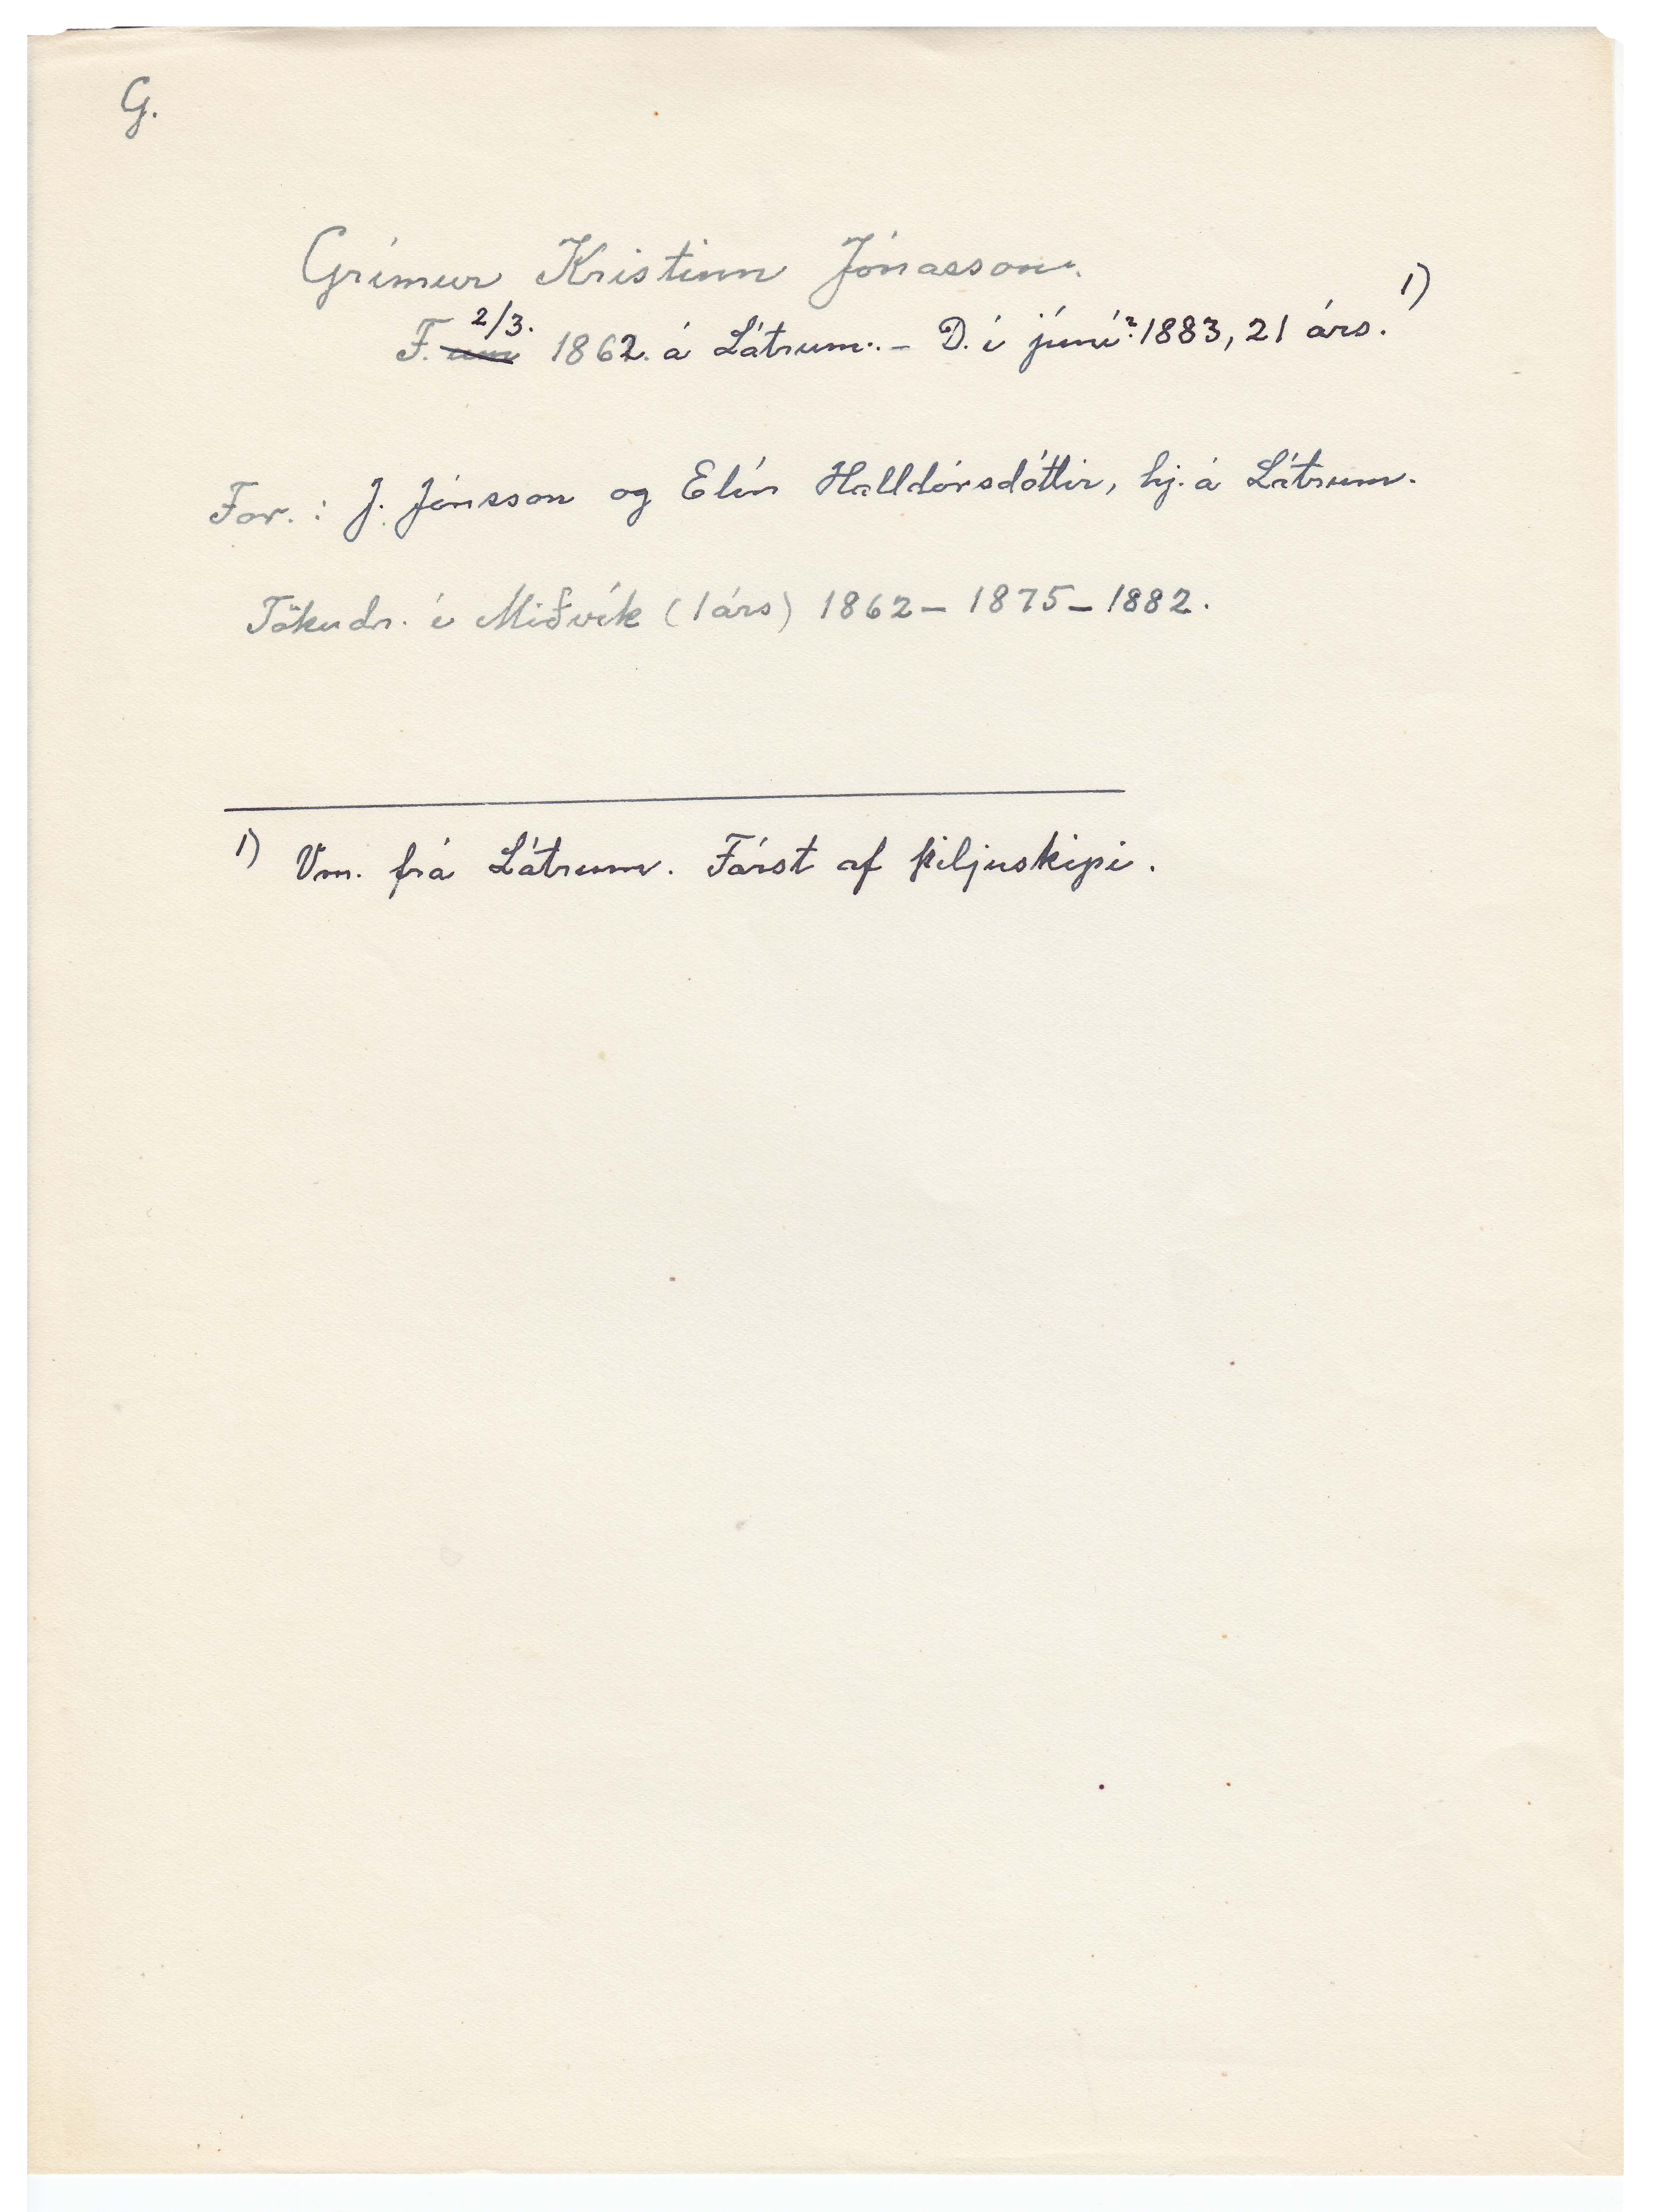 G.
Grímur Kristinn Jónasson.
F. um 2/3. 1862. á Látrum. - D. í júní? 1883, 21 árs. 1)
For.: J. Jónsson og Elín Halldórsdóttir, hj. á Látrum.
Tökudr. í Miðvík (1 árs) 1862 - 1875 - 1882.
1) Vm. frá Látrum. Fórst af þiljuskipi.